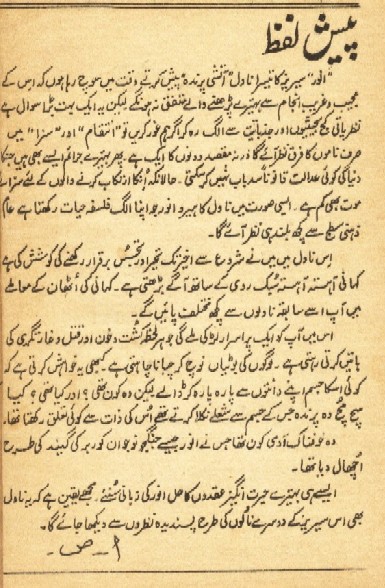 پیش لفظ
"انور" سیریز کا تیسرا ناول "آتشی پرندہ" پیش کرتے وقت میں سوچ رہا ہوں کہ اس کے
عجیب و غریب انجام سے بہتیرے پڑھنے والے متفق نہ ہونگے لیکن یہ ایک بہت بڑا سوال ہے
نظریاتی کج بحثیوں اور جذباتیت سے الگ رہ کر اگر ہم غور کریں تو "انتقام" اور "سزا" میں
صرف ناموں کا فرق نظر آئے گا ورنہ مقصد دونوں کا ایک ہے۔ پھر بہتیرے جرائم ایسے بھی ہیں جنکا
دنیا کی کوئی عدالت قانوناً سدباب نہیں کر سکتی۔ حالانکہ انکا ارتکاب کرنے والوں کے لئے سزائے
موت بھی کم ہے۔ ایسی صورت میں ناول کا ہیرو انور جو اپنا الگ فلسفہ حیات رکھتا ہے عام
ذہنی سطح سے کچھ بلند ہی نظر آئے گا۔
اس ناول میں میں نے شروع سے اخیر تک تحیر اور تجسس برقرار رکھنے کی کوشش کی ہے
کہانی آہستہ آہستہ سبک روی کے ساتھ آگے بڑھتی ہے۔ کہانی کی اُٹھان کے معاملے
میں آپ اسے سابقہ ناولوں سے کچھ مختلف پائیں گے۔
اس میں آپ کو ایک پراسرار لڑکی ملے گی جو ہر لحظہ کشت و خون اور قتل و غارتگری کی
باتیں کرتی رہتی ہے۔ لوگوں کی بوٹیاں نوچ کر چبانا چاہتی ہے۔ کبھی یہ خواہش کرتی ہے کہ
کوئی اسکا جسم اپنے دانتوں سے پارہ پارہ کر ڈالے لیکن وہ کون تھی؟ اور کیا تھی؟ کیا
سچ مچ وہ پرندہ جس کے جسم سے شعلے نکلا کرتے تھے اُس کی ذات سے کوئی تعلق رکھتا تھا۔
وہ خوفناک آدمی کون تھا جس نے انور جیسے جنگجو نوجوان کو ربر کی گیند کی طرح
اُچھال دیا تھا۔
ایسے ہی بہتیرے حیرت انگیز عقدوں کا حل انور کی زبانی سُنئے۔ مجھے یقین ہے کہ یہ ناول
بھی اس سیریز کے دوسرے ناولوں کی طرح پسندیدہ نظروں سے دیکھا جائے گا۔
ا۔ ص۔